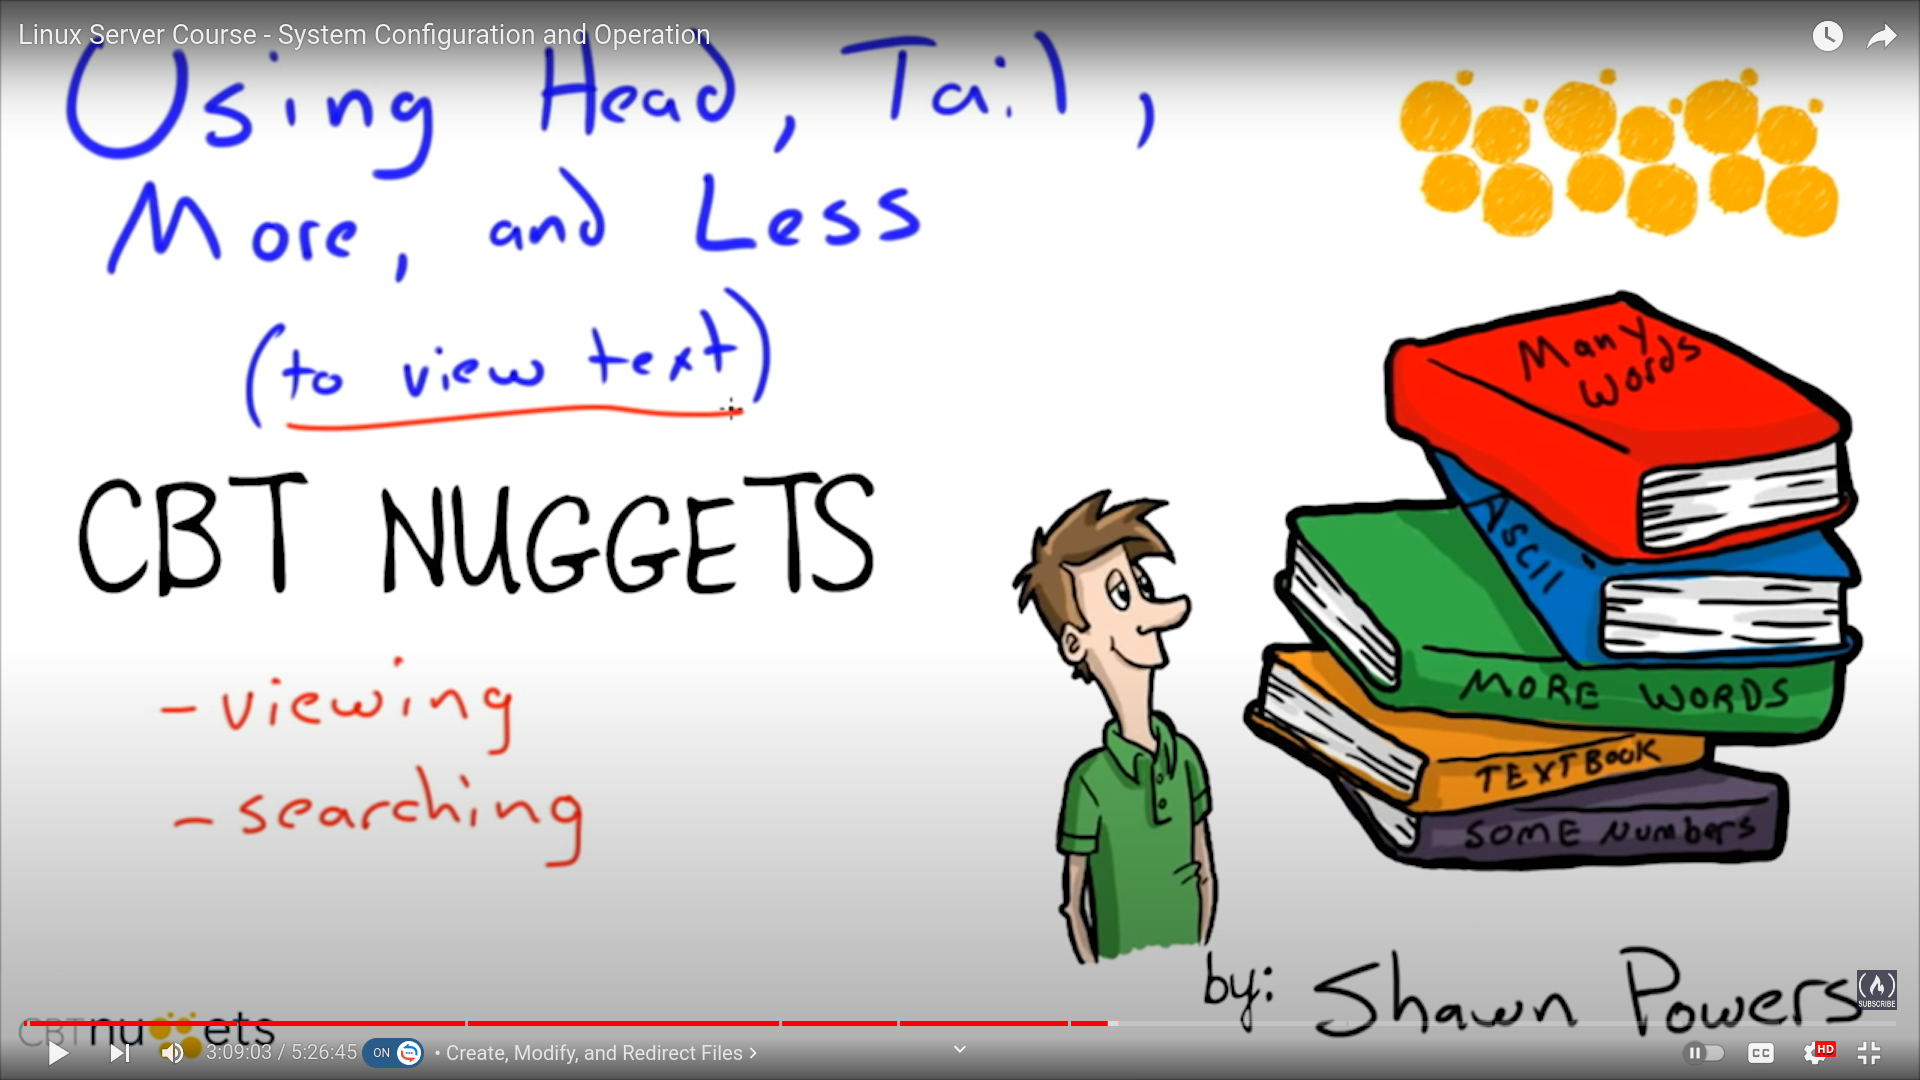 Linux Server Course - System Configuration and Operation
Using Head, Tail,
More, and Less
(to view text)
CBT NUGGETS
- viewing
- searching
Many
Words
ASCII
MORE WORDS
TEXTBOOK
SOME Numbers
by: Shawn Powers
SUBSCRIBE
CBTnuggets
3:09:03 / 5:26:45
ON
• Create, Modify, and Redirect Files >
CC
HD